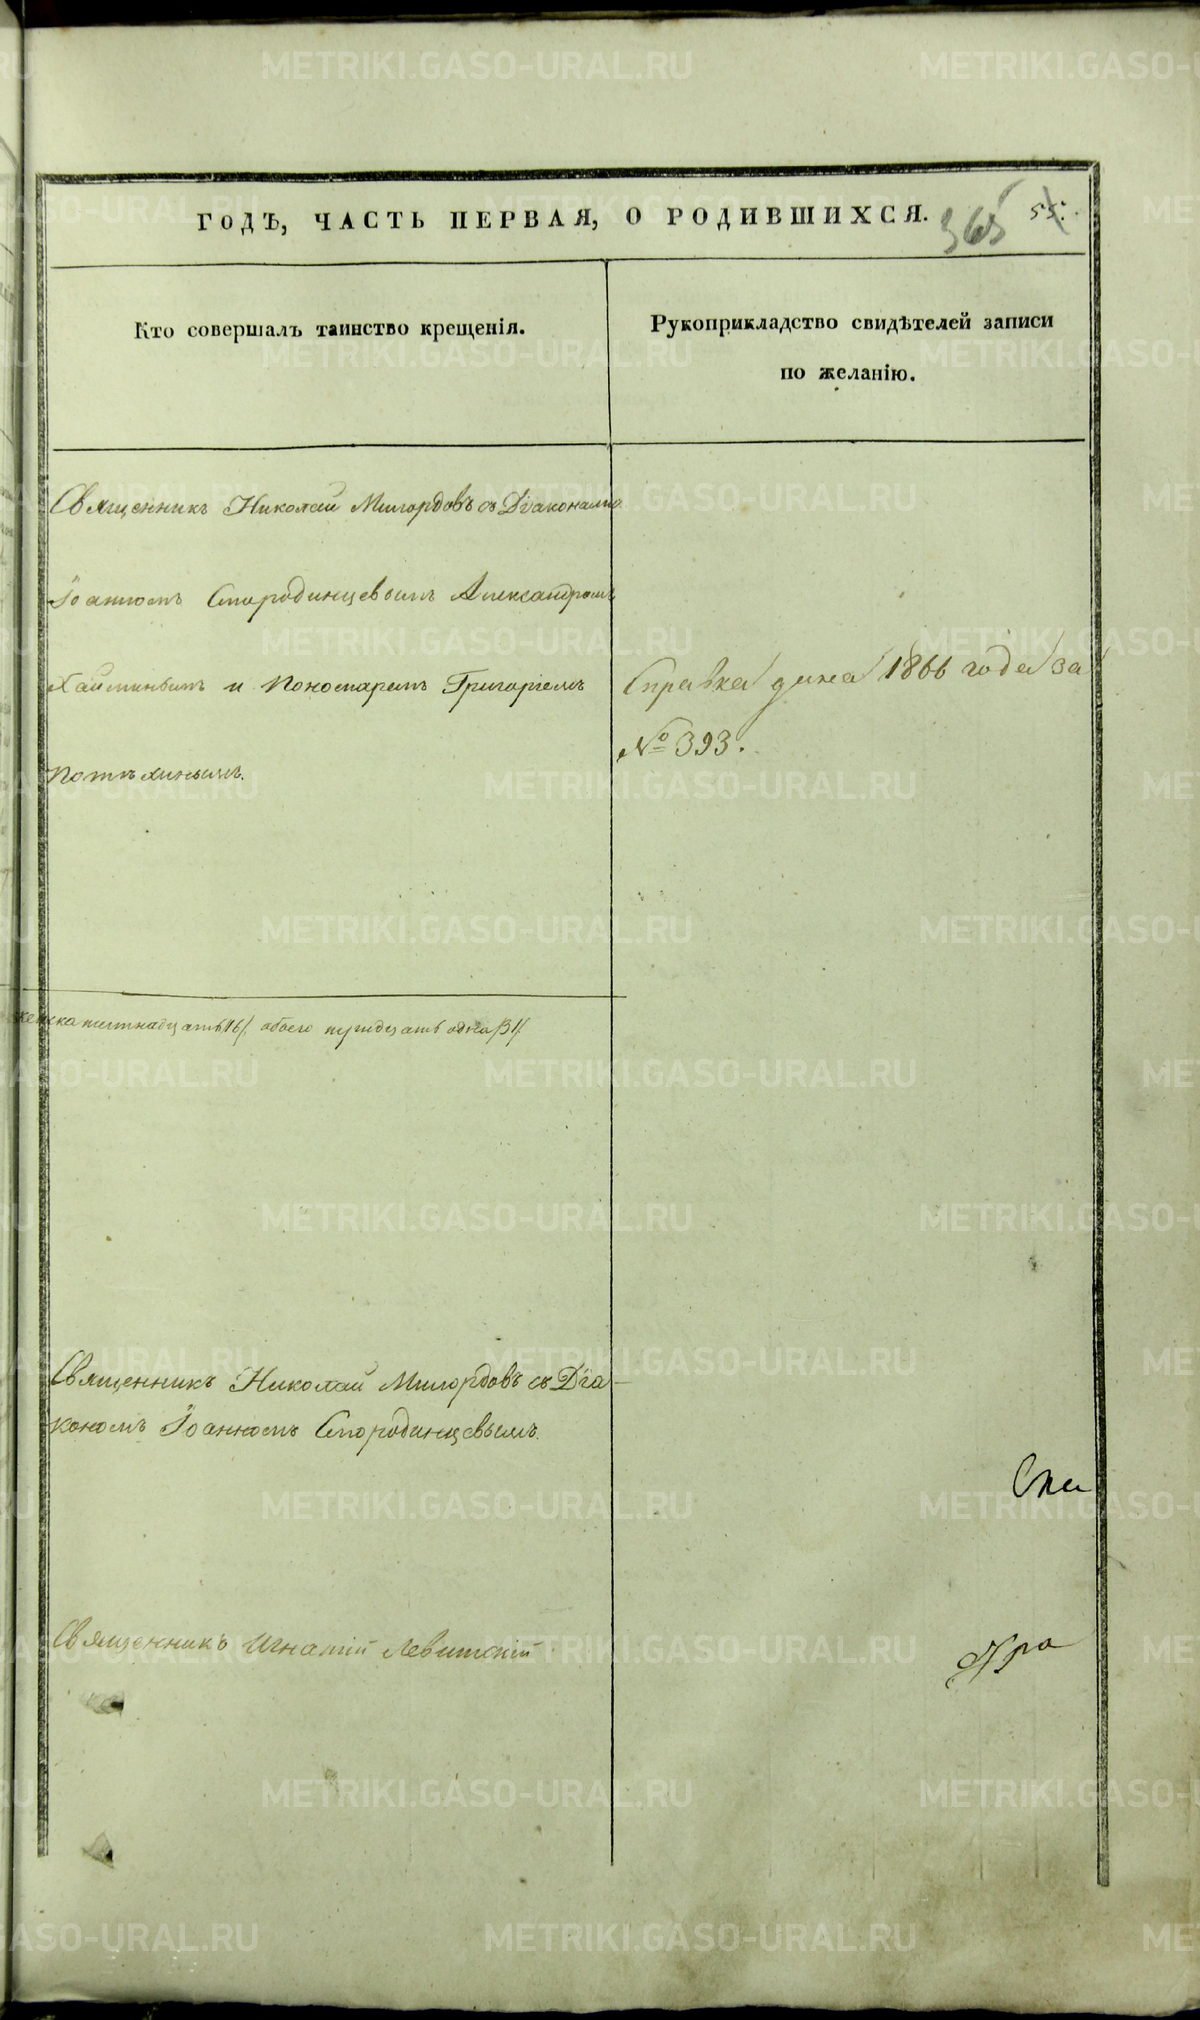 ГОДЪ, ЧАСТЬ ПЕРВАЯ, О РОДИВШИХСЯ.
365
Кто совершалъ таинство крещенія.
Рукоприкладство свидѣтелей записи
по желанію.
Священникъ Николай Милордовъ съ Діаконами
Іоанномъ Стородинцевымъ Александромъ
и Пономаремъ Григоріемъ
Справка дана 1866 года за
№ 393.
16/. обоего тридцать одна /31/.
Священникъ Николай Милордовъ съ Діа-
кономъ Іоанномъ Стородинцевымъ.
Священникъ Игнатій Левитскій
METRIKI.GASO-URAL.RU